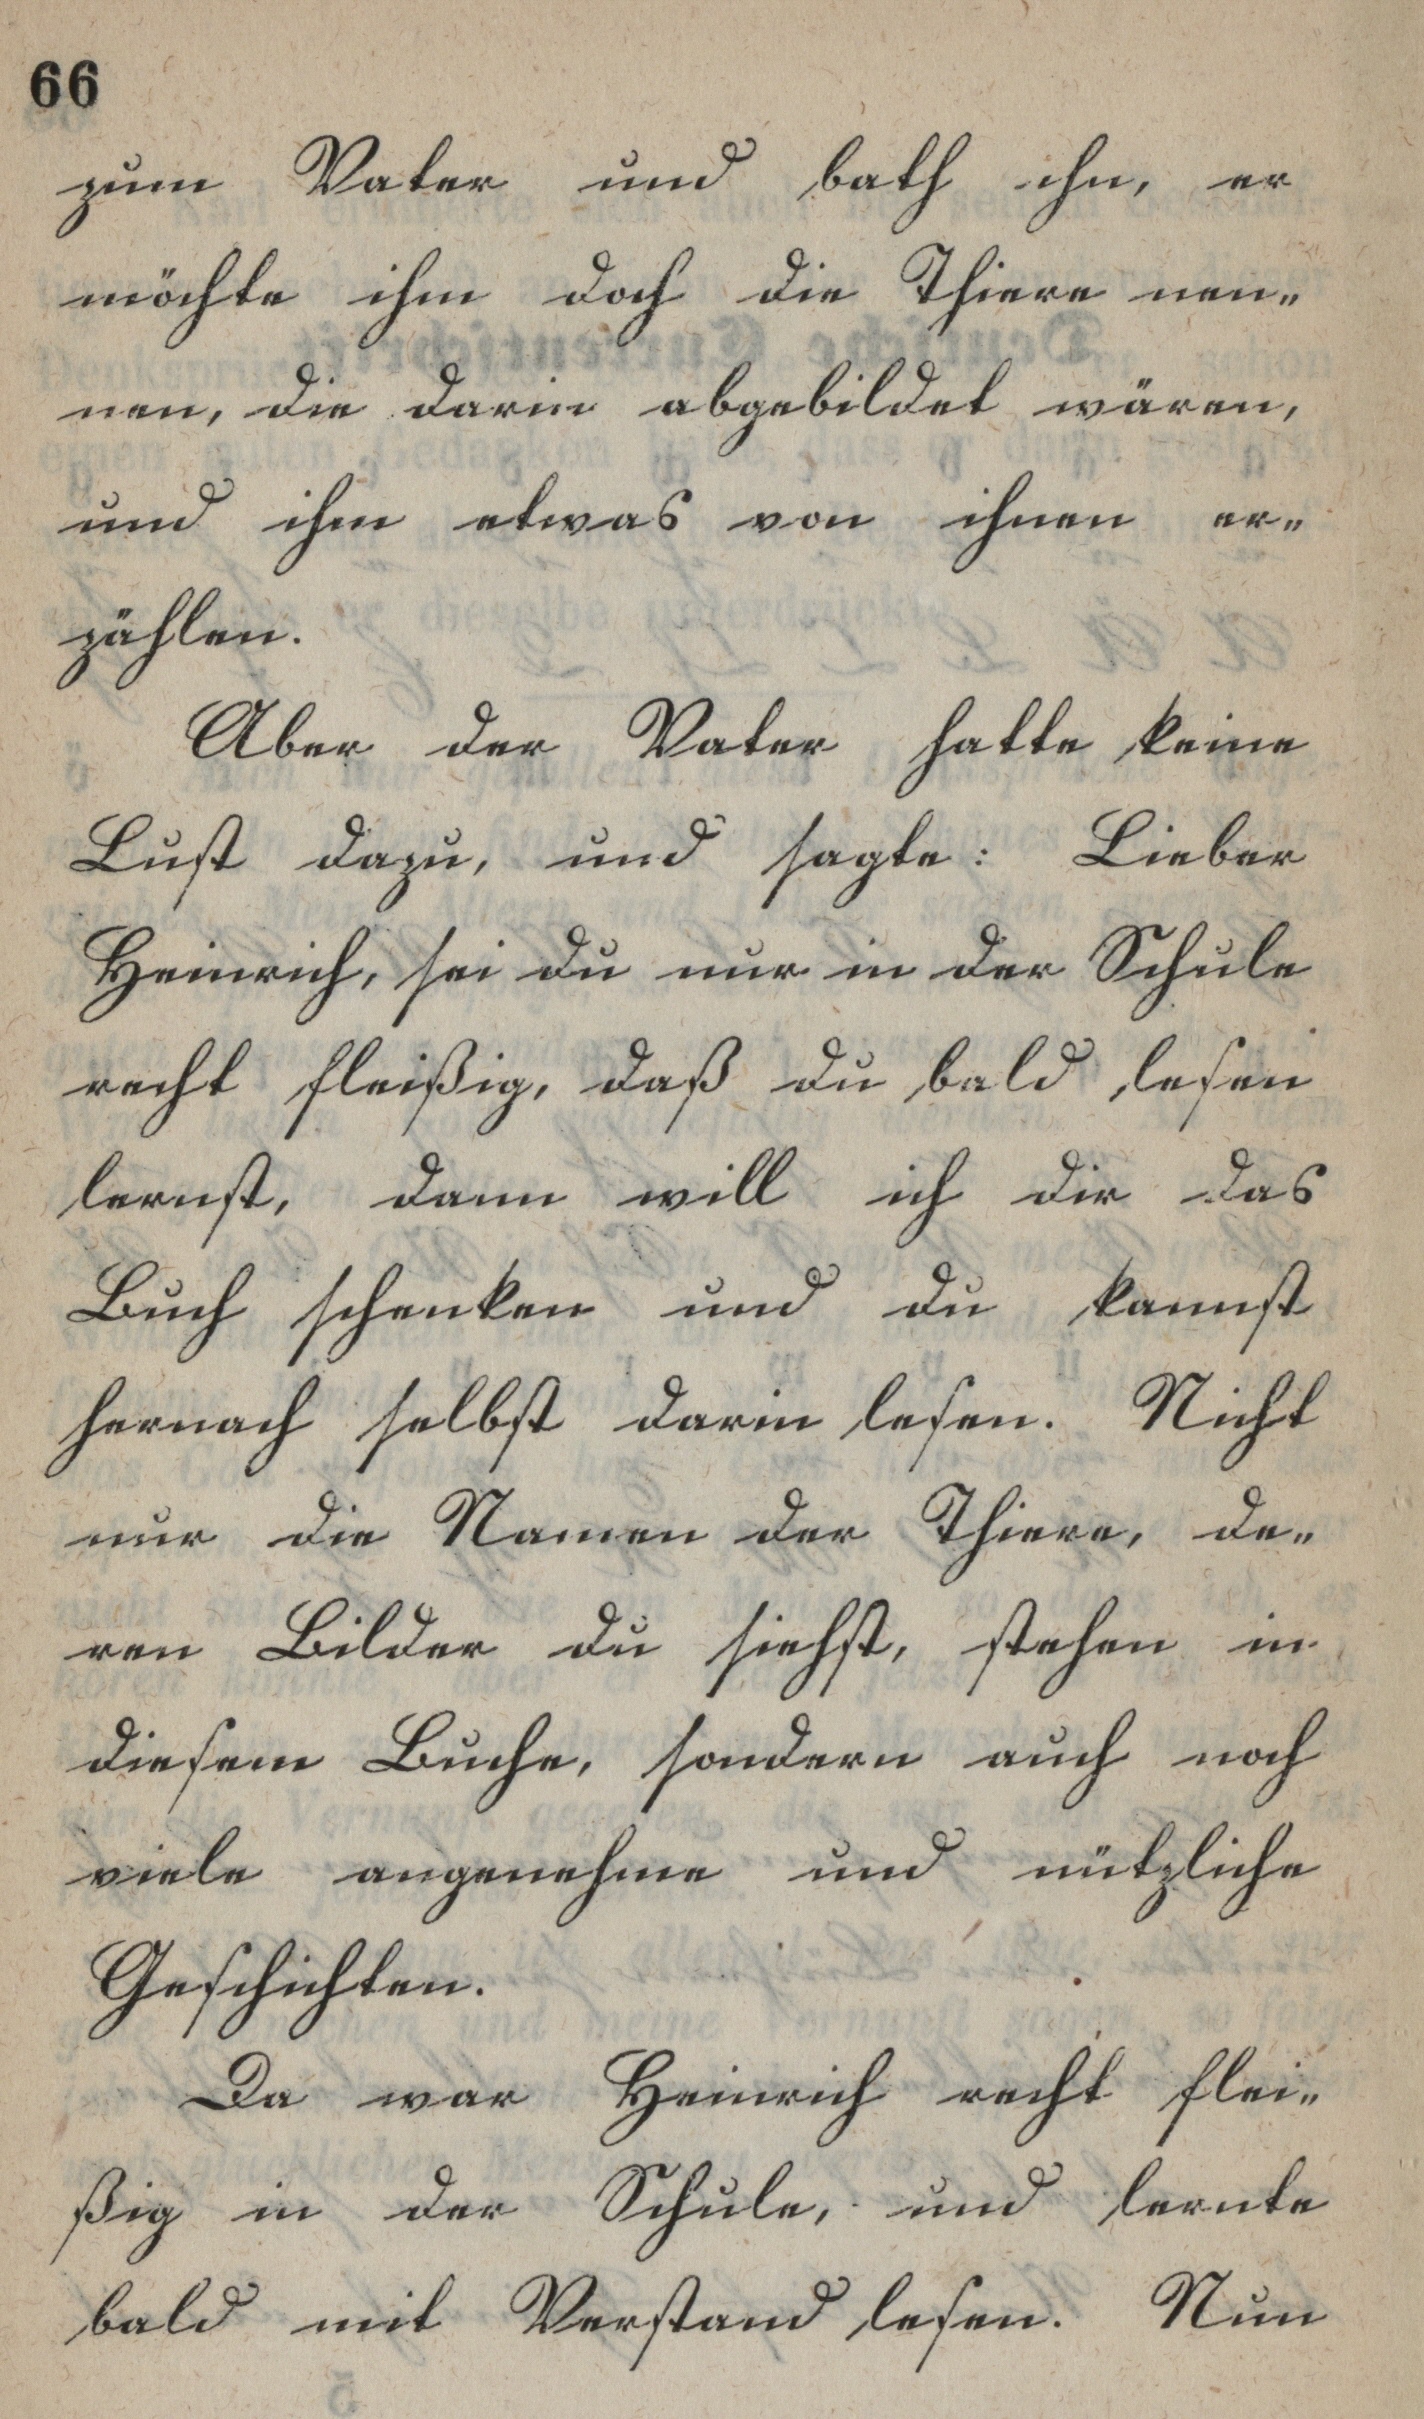 66
zum Vater und bath ihn, er
möchte ihm doch die Thiere nen-
nen, die darin abgebildet wären,
und ihm etwas von ihnen er-
zählen.
Aber der Vater hatte keine
Lust dazu, und sagte: Lieber
Heinrich, sei du nur in der Schule
recht fleißig, daß du bald lesen
lernst, dann will ich dir das
Buch schenken und du kannst
hernach selbst darin lesen. Nicht
nur die Namen der Thiere, de-
ren Bilder du siehst, stehen in
diesem Buche, sondern auch noch
viele angenehme und nützliche
Geschichten.
Da war Heinrich recht flei-
ßig in der Schule, und lernte
bald mit Verstand lesen. Nun